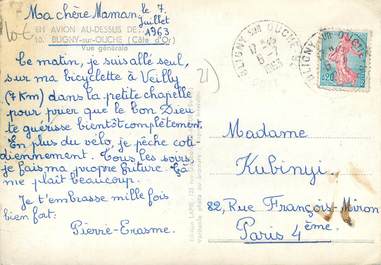 Ma chère Maman, le 7
juillet
1963
10€
EN AVION AU-DESSUS DE
10. BLIGNY-sur-OUCHE (Côte d'Or)
Vue générale
Ce matin, je suis allé seul,
sur ma bicyclette à Veilly
(7 Km) dans la petite chapelle
pour prier que le bon Dieu
te guérisse bientôt complètement.
En plus du vélo, je pêche coti
diennement. Tous les soirs,
je fais ma propre friture. Ça
me plait beaucoup.
Je t'embrasse mille fois
bien fort:
Pierre-Erasme.
21
BLIGNY SUR OUCHE
1963
0,20
Madame
Kubinyi
82, Rue François-Miron
Paris 4ème.